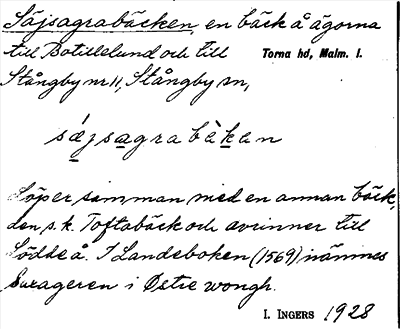 Säjsagrabäcken, en bäck å ägorna
till Botillelund och till Torna hd, Malm. l.
Stångby nr 11, Stångby sn,
säjsagrabèken
Löper samman med en annan bäck,
den s.k. Toftabäck och avrinner till
Lödde å. I Landeboken (1569) nämnes
Sexageren i Østre wongh.
I. INGERS 1928